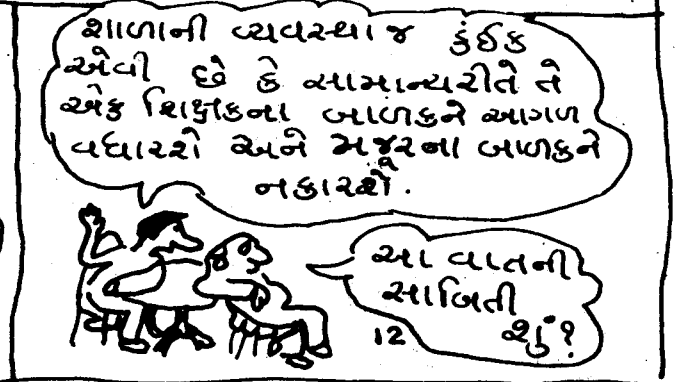 શાળાની વ્યવસ્થા જ કુંઈક
એવી છે કે સામાન્યરીતે તે
એક શિક્ષકના બાળકને આગળ
વધારશે અને મજૂરના બાળકને
નકારશે.
આ વાતની
સાબિતી
શું?
12